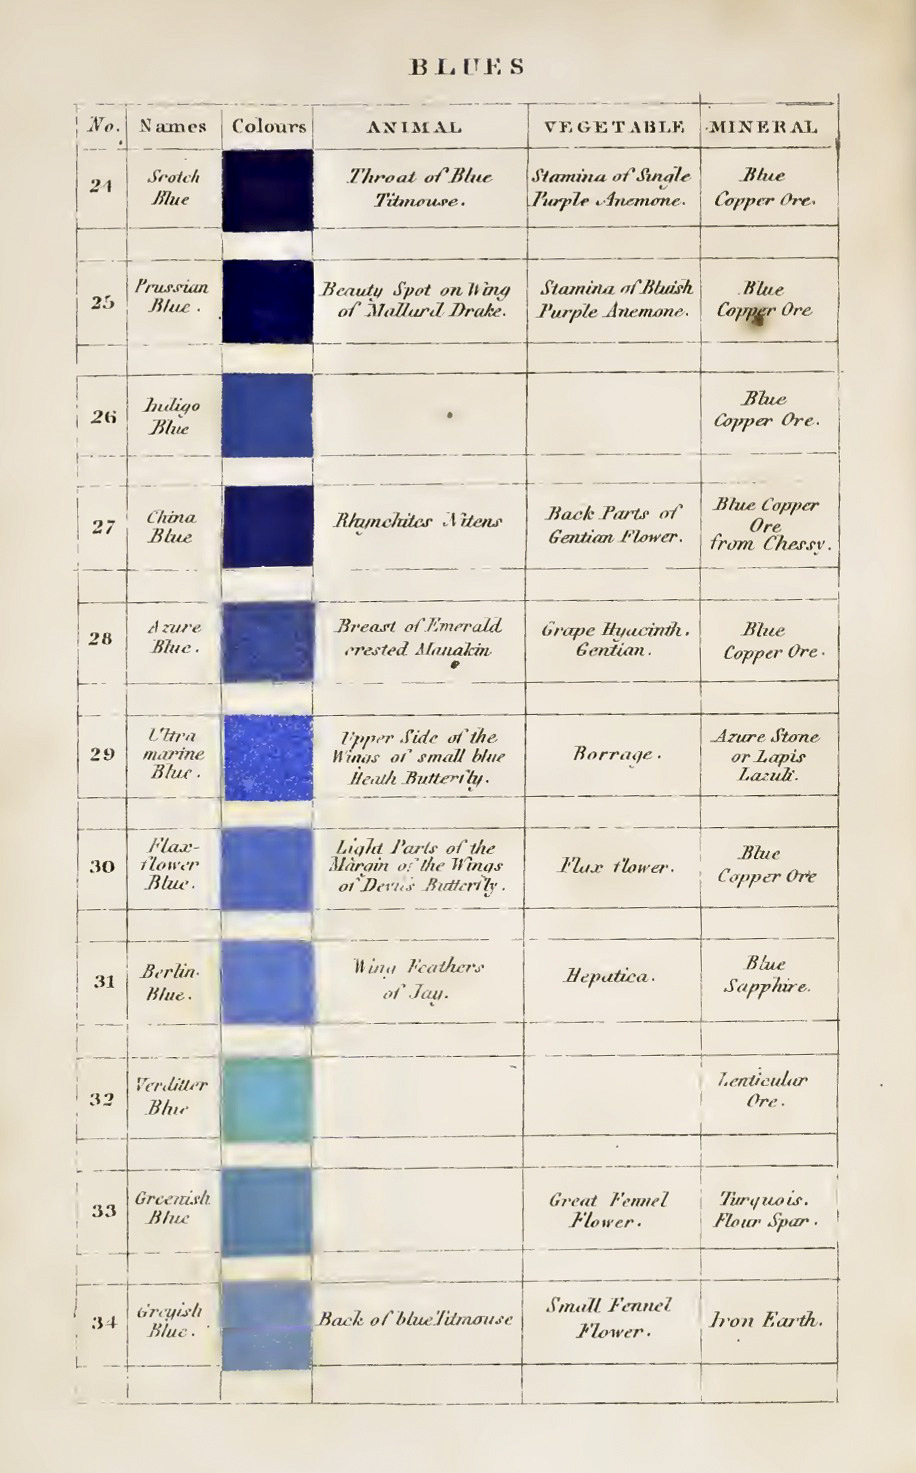 BLUES
No. Names Colours ANIMAL VEGETABLE MINERAL
24
Scotch
Blue
Throat of Blue
Titmouse.
Stamina of Single
Purple Anemone.
Blue
Copper Ore.
25
Prussian
Blue.
Beauty Spot on Wing
of Mallard Drake.
Stamina of Bluish
Purple Anemone.
Blue
Copper Ore
26
Indigo
Blue
Blue
Copper Ore.
27
China
Blue
Rhynchites Nitens
Back Parts of
Gentian Flower.
Blue Copper
Ore
from Chessy.
28
Azure
Blue.
Breast of Emerald
crested Manakin
Grape Hyacinth.
Gentian.
Blue
Copper Ore.
29
Ultra
marine
Blue.
Upper Side of the
Wings of small blue
Heath Butterfly.
Borrage.
Azure Stone
or Lapis
Lazuli.
30
Flax-
flower
Blue.
Light Parts of the
Margin of the Wings
of Devils Butterfly.
Flax flower.
Blue
Copper Ore
31
Berlin
Blue.
Wing Feathers
of Jay.
Hepatica.
Blue
Sapphire.
32
Verditter
Blue
Lenticular
Ore.
33
Greenish
Blue
Great Fennel
Flower.
Turquois.
Flour Spar.
34
Greyish
Blue.
Back of blue Titmouse
Small Fennel
Flower.
Iron Earth.